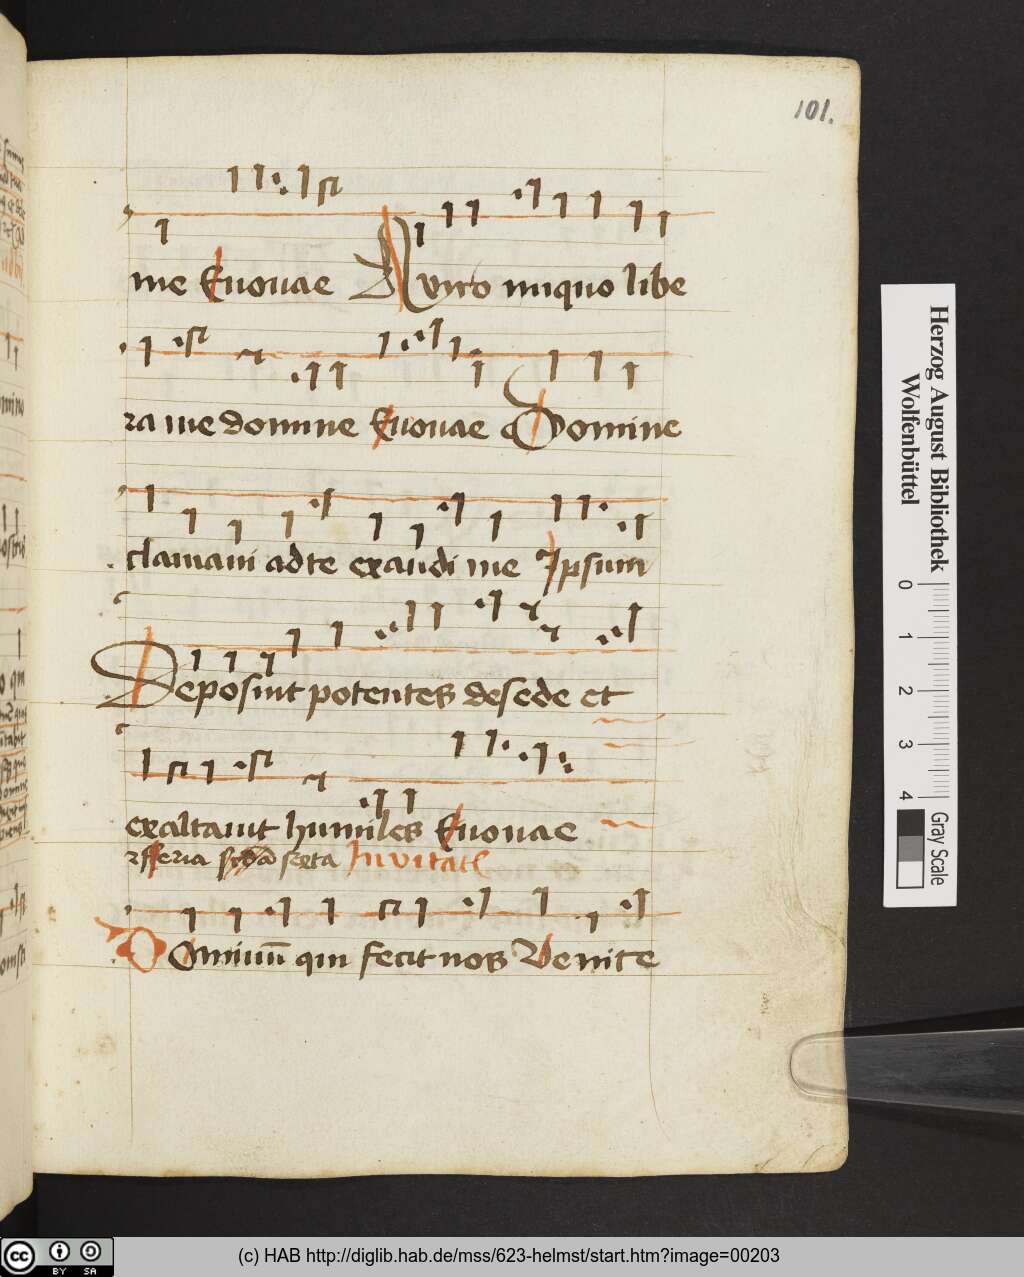 101.
me Euouae A viro iniquo libe
ra me domine Euouae Domine
clamaui ad te exaudi me Ipsum
Deposuit potentes de sede et
exaltauit humiles Euouae
feria sexta Inuitat
Dominum qui fecit nos Venite
Herzog August Bibliothek
Wolfenbüttel
0 1 2 3 4
Gray Scale
cc BY SA
(c) HAB http://diglib.hab.de/mss/623-helmst/start.htm?image=00203